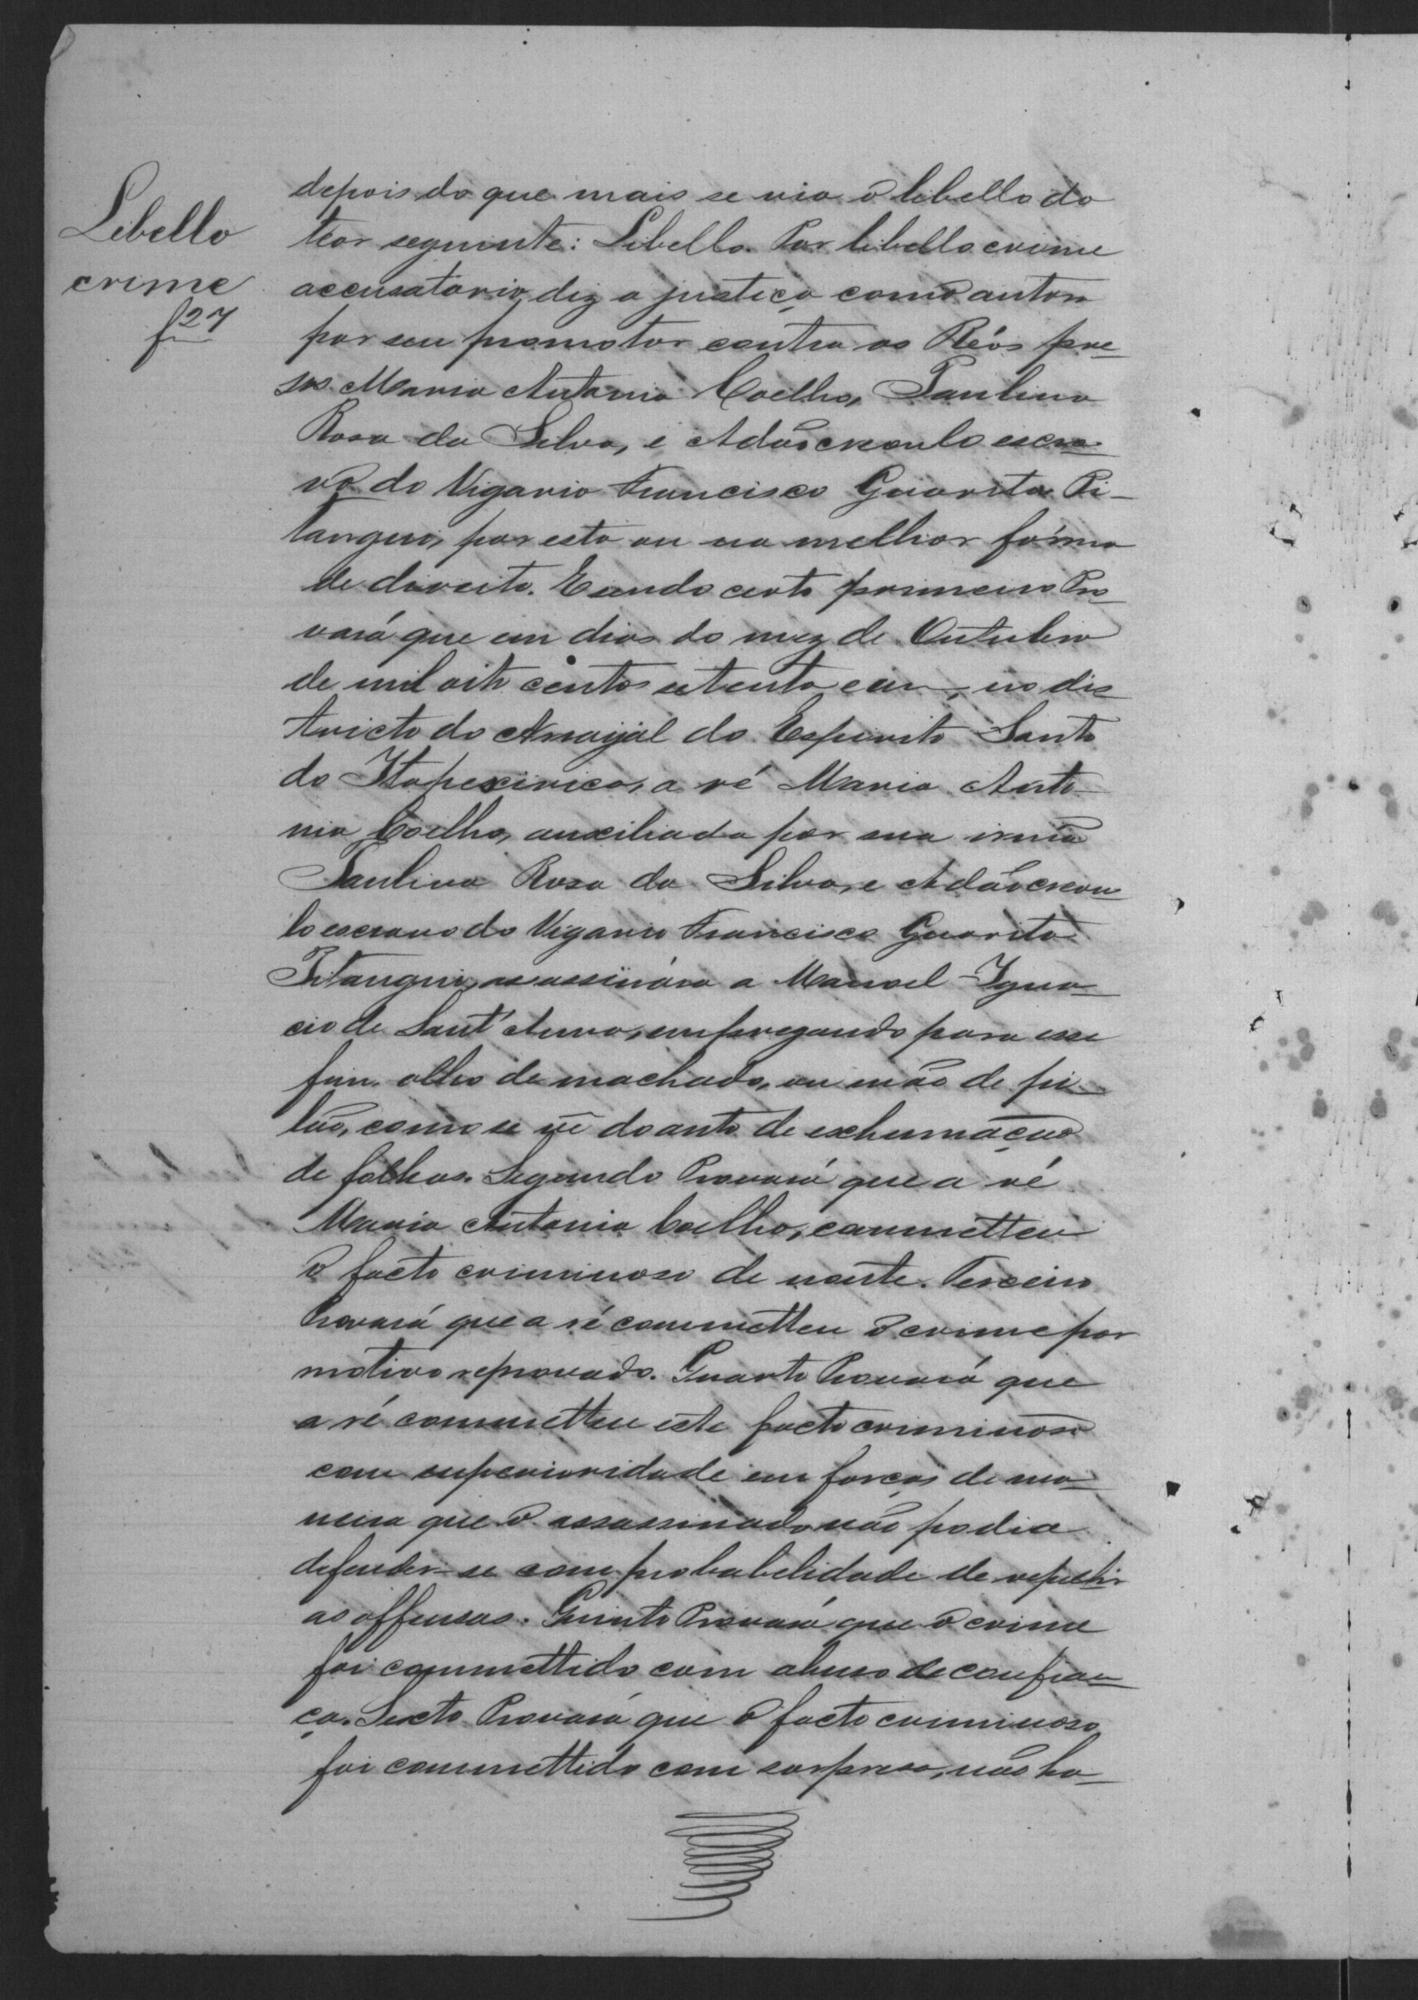 Libello
crime
f 27
depois do que mais se via o libello do
teor seguinte: Libello. Por libello crime
accusatorio, diz a justiça como autora
por seu promotor contra os Réos pre-
sos Maria Antonia Coelho, Paulina
Rosa da Silva, e Adão creoulo escra-
vo do Vigario Francisco Guarita Pi-
tangui, por esta ou na melhor fórma
de direito. E sendo certo primeiro Pro-
vará que em dias do mez de Outubro
de mil oito centos setenta e um, no dis
tricto do Arraial do Espirito Santo
do Itapecirica, a ré Maria Anto-
nia Coelho, auxiliada por sua irmã
Paulina Rosa da Silva, e Adão creou-
lo escravo do Vigario Francisco Guarita
Pitangui, assassinára a Manoel Igna-
cio de Sant'Anna, empregando para esse
fim olho de machado, ou mão de pi-
lão, como se vê do auto de exhumação
de folhas. Segundo Provará que a ré
Maria Antonia Coelho, commetteu
o facto criminoso de noute. Terceiro
Provará que a ré commetteu o crime por
motivo reprovado. Quarto Provará que
a ré commetteu este facto criminoso
com superioridade em forças de ma-
neira que o assassinado não podia
defender-se com probabelidade de repellir
as offensas. Quinto Provará que o crime
foi commettido com abuso de confian-
ça. Sexto Provará que o facto criminoso
foi commettido com sorpresa, não ha-